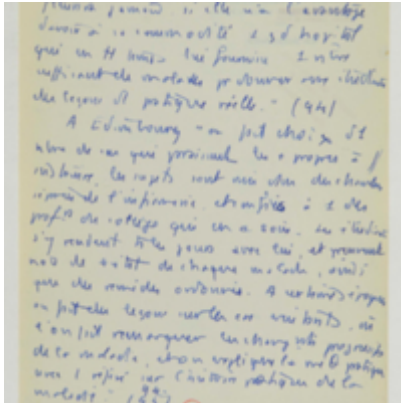 jamais si elle n'a l'avantage
d'avoir à sa commodité 1 gd hôpital
qui en tt temps lui fournisse 1 nbre
suffisant de malades pr donner aux étudiants
des leçons d pratique réelle." (44)
A Edimbourg - on fit choix d'1
nbre de cas qui paraissent les + propres à
les sujets sont mis ds des chambres
séparées de l'infirmerie, et confiés à 1 des
profs du collège qui en a soin. Les étudiants
s'y rendent ts les jours avec lui, et prennent
note de l'état de chaque malade, ainsi
que des remèdes ordonnés. A certaines époques
on fait des leçons sur les cas
l'on fait remarquer les changts progressifs
de la maladie, et on explique la méth pratique
avec 1 sur l'histoire pratique de la
maladie" (44)